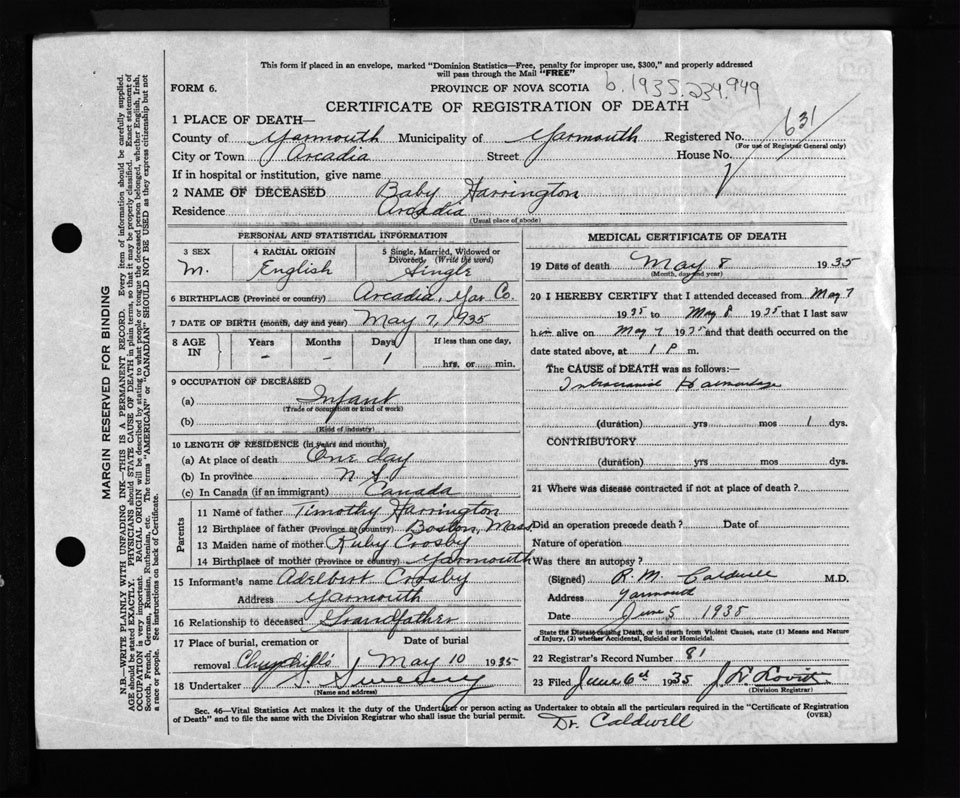 This form if placed in an envelope, marked "Dominion Statistics—Free, penalty for improper use, $300," and properly addressed
will pass through the Mail "FREE"
FORM 6.
PROVINCE OF NOVA SCOTIA
b. 1935.234.949
CERTIFICATE OF REGISTRATION OF DEATH
1 PLACE OF DEATH—
County of Yarmouth Municipality of Yarmouth Registered No. 631
(For use of Registrar General only)
City or Town Arcadia Street House No.
If in hospital or institution, give name
2 NAME OF DECEASED Baby Harrington
Residence Arcadia
(Usual place of abode)
PERSONAL AND STATISTICAL INFORMATION
3 SEX
M.
4 RACIAL ORIGIN
English
5 Single, Married, Widowed or
Divorced (Write the word)
Single
6 BIRTHPLACE (Province or country) Arcadia, Yar. Co.
7 DATE OF BIRTH (month, day and year) May 7, 1935
8 AGE IN
Years Months Days If less than one day,
– – 1 hrs. or min.
9 OCCUPATION OF DECEASED
(a) Infant
(Trade or occupation or kind of work)
(b)
(Kind of industry)
10 LENGTH OF RESIDENCE (in years and months)
(a) At place of death One day
(b) In province N. S.
(c) In Canada (if an immigrant) Canada
Parents
11 Name of father Timothy Harrington
12 Birthplace of father (Province or country) Boston, Mass.
13 Maiden name of mother Ruby Crosby
14 Birthplace of mother (Province or country) Yarmouth
15 Informant's name Adelbert Crosby
Address Yarmouth
16 Relationship to deceased Grandfather
17 Place of burial, cremation or Date of burial
removal Churchill's May 10 1935
18 Undertaker Sweeny
(Name and address)
MEDICAL CERTIFICATE OF DEATH
19 Date of death May 8 1935
(Month, day and year)
20 I HEREBY CERTIFY that I attended deceased from May 7
1935 to May 8 1935 that I last saw
him alive on May 7 1935 and that death occurred on the
date stated above, at 1 P m.
The CAUSE of DEATH was as follows:—
Intracranial Haemorrhage
(duration) yrs mos 1 dys.
CONTRIBUTORY
(duration) yrs mos dys.
21 Where was disease contracted if not at place of death?
Did an operation precede death? Date of
Nature of operation
Was there an autopsy?
(Signed) R. M. Caldwell M.D.
Address Yarmouth
Date June 5 1935
State the Disease causing Death, or in death from Violent Causes, state (1) Means and Nature
of Injury, (2) whether Accidental, Suicidal or Homicidal.
22 Registrar's Record Number 81
23 Filed June 6th 1935 J. D. Lovitt
(Division Registrar)
Sec. 46—Vital Statistics Act makes it the duty of the Undertaker or person acting as Undertaker to obtain all the particulars required in the "Certificate of Registration
of Death" and to file the same with the Division Registrar who shall issue the burial permit.
(OVER)
Dr. Caldwell
MARGIN RESERVED FOR BINDING
N.B.—WRITE PLAINLY WITH UNFADING INK—THIS IS A PERMANENT RECORD. Every item of information should be carefully supplied.
AGE should be stated EXACTLY. PHYSICIANS should STATE CAUSE OF DEATH in plain terms, so that it may be properly classified. Exact statement of
OCCUPATION is very important. RACIAL ORIGIN will be described by stating to what people or tongue the deceased person belonged, whether English, Irish,
Scotch, French, German, Russian, Ruthenian, etc. The terms "AMERICAN" or "CANADIAN" SHOULD NOT BE USED as they express citizenship but not
a race or people. See instructions on back of Certificate.